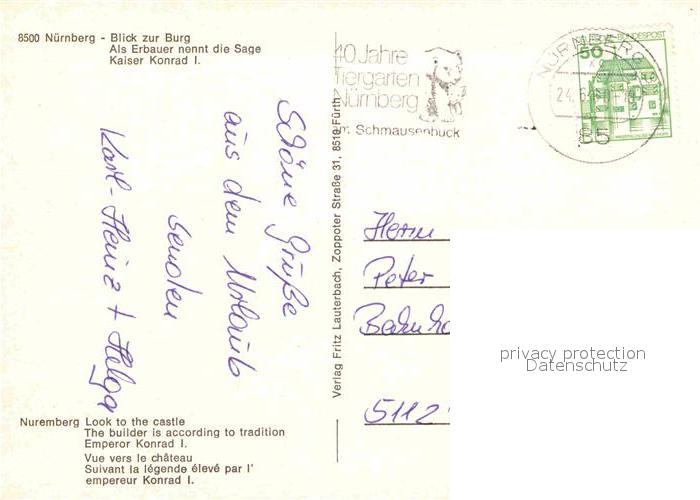 8500 Nürnberg - Blick zur Burg
Als Erbauer nennt die Sage
Kaiser Konrad I.
40 Jahre
Tiergarten
Nürnberg
am Schmausenbuck
NÜRNBERG
DEUTSCHE BUNDESPOST
50
85
Schöne Grüße
aus dem Urlaub
senden
Karl-Heinz + Helga
Verlag Fritz Lauterbach, Zoppoter Straße 31, 8510 Fürth
Herrn
Peter
5112
privacy protection
Datenschutz
Nuremberg Look to the castle
The builder is according to tradition
Emperor Konrad I.
Vue vers le château
Suivant la légende élevé par l'
empereur Konrad I.